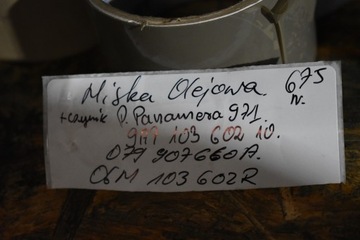 Miska Olejowa 675
+czujnik P. Panamera 971. N.
9A7 103 602 10.
079 907 660A.
06M 103 602R